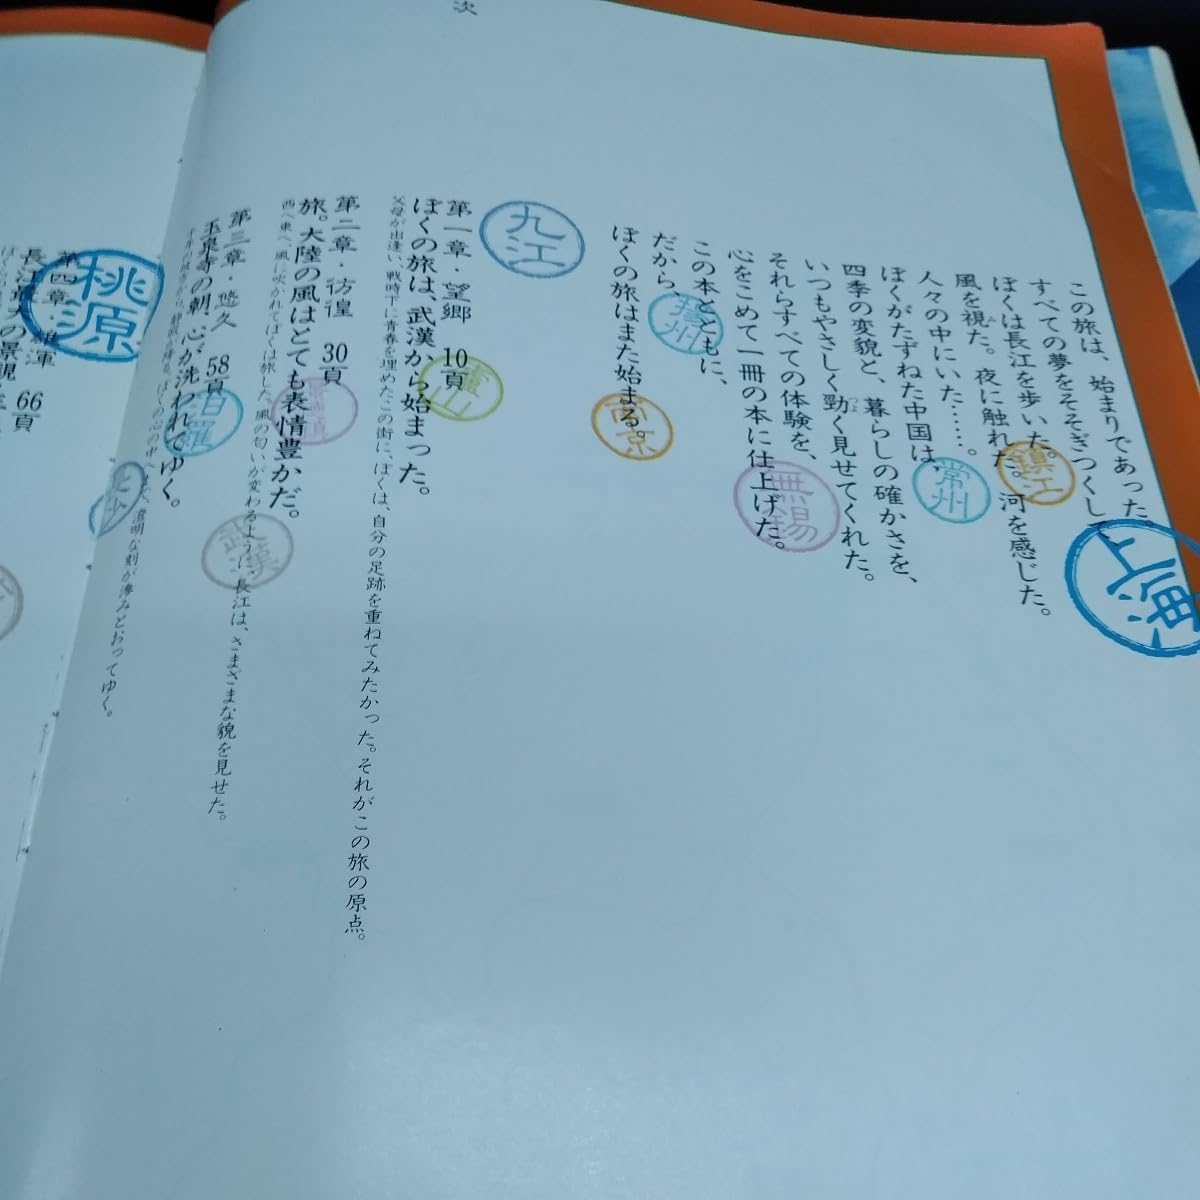 次
この旅は、始まりであった。
すべての夢をそそぎつくして、
ぼくは長江を歩いた。
風を視た。夜に触れた。河を感じた。
人々の中にいた……。
ぼくがたずねた中国は、
四季の変貌と、暮らしの確かさを、
いつもやさしく勁く見せてくれた。
それらすべての体験を、
心をこめて一冊の本に仕上げた。
この本とともに、
だから、
ぼくの旅はまた始まる。
上海
鎮江
常州
無錫
南京
九江
第一章・望郷 10頁
ぼくの旅は、武漢から始まった。
父母が出逢い、戦時下に青春を埋めたこの街に、ぼくは、自分の足跡を重ねてみたかった。それがこの旅の原点。
廬山
第二章・彷徨 30頁
旅。大陸の風はとても表情豊かだ。
西へ東へ、風に吹かれてぼくは旅した。風の匂いが変わるように、長江は、さまざまな貌を見せた。
武漢
第三章・悠久 58頁
玉泉寺の朝、心が洗われてゆく。
澄明な刻が滲みとおってゆく。
汨羅
桃源
第四章 66頁